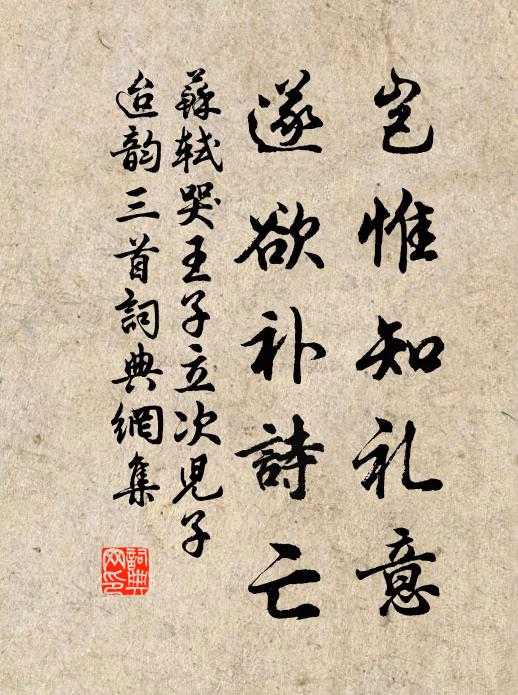 岂惟知礼意
遂欲补詩亡
蘇軾哭王子立次兒子
迨韵三首詞典網集
詞典网印